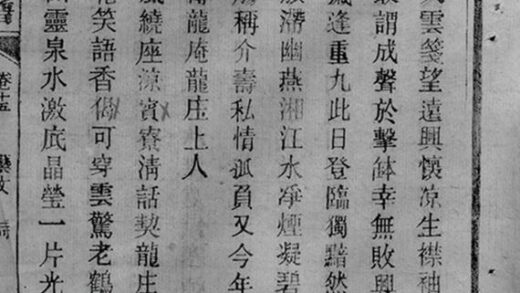 雲箋望遠興懷凉生襟袖
謂成聲於擊缽幸無敗興
逢重九此日登臨獨黯然
滯幽燕湘江水淨煙凝碧
稱介壽私情孤負又今年
龍庵龍庄上人
風繞座涼賓寮清話契龍庄
笑語香偈可穿雲驚老鶴
靈泉水激底晶瑩一片光
卷十五 藝文